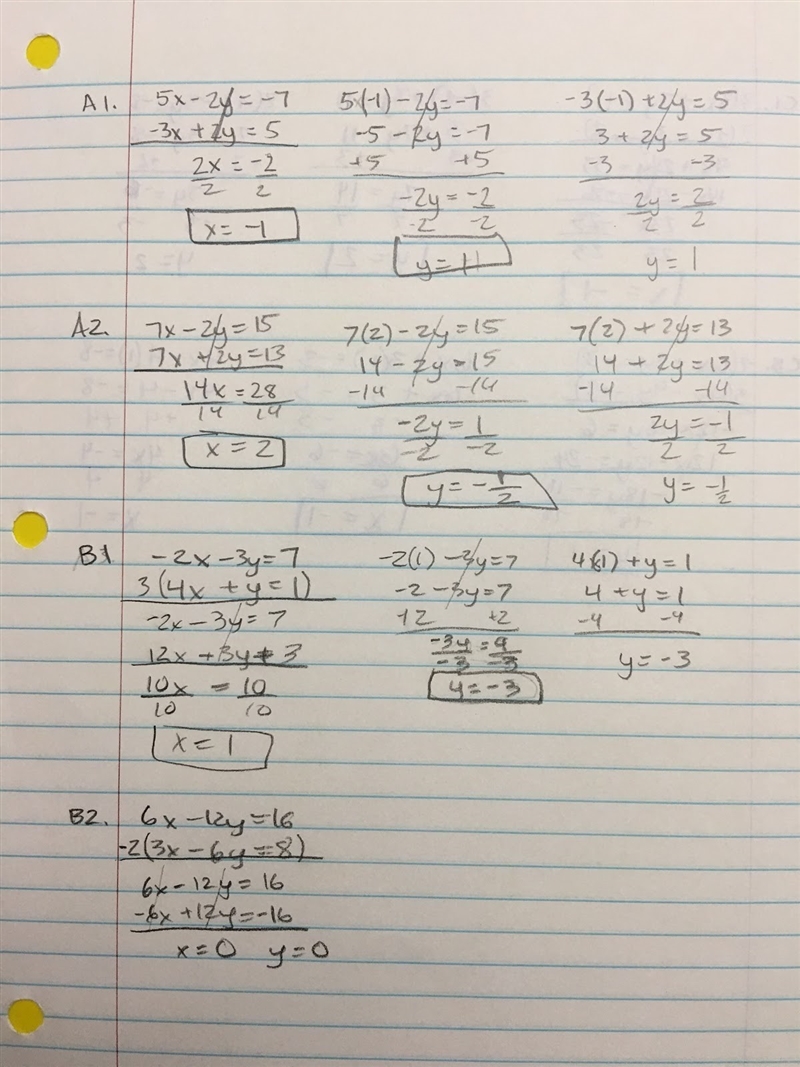 A1. 5x - 2y = -7
-3x + 2y = 5
2x = -2
2 2
x = -1
5(-1) - 2y = -7
-5 - 2y = -7
+5 +5
-2y = -2
-2 -2
y = 1
-3(-1) + 2y = 5
3 + 2y = 5
-3 -3
2y = 2
2 2
y = 1
A2. 7x - 2y = 15
7x + 2y = 13
14x = 28
14 14
x = 2
7(2) - 2y = 15
14 - 2y = 15
-14 -14
-2y = 1
-2 -2
y = -1/2
7(2) + 2y = 13
14 + 2y = 13
-14 -14
2y = -1
2 2
y = -1/2
B1. -2x - 3y = 7
3(4x + y = 1)
-2x - 3y = 7
12x + 3y = 3
10x = 10
10 10
x = 1
-2(1) - 3y = 7
-2 - 3y = 7
+2 +2
-3y = 9
-3 -3
y = -3
4(1) + y = 1
4 + y = 1
-4 -4
y = -3
B2. 6x - 12y = 16
-2(3x - 6y = 8)
6x - 12y = 16
-6x + 12y = -16
x = 0 y = 0